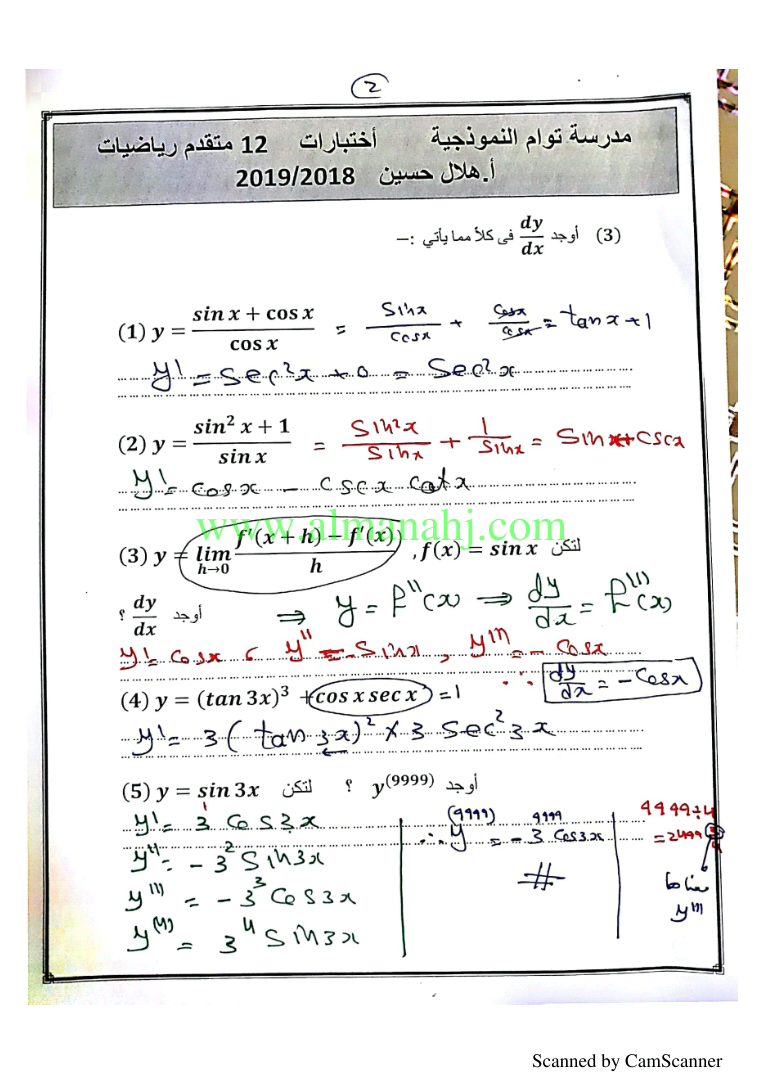 2
مدرسة توام النموذجية أختبارات 12 متقدم رياضيات
أ.هلال حسين 2019/2018
(3) أوجد dy/dx فى كلاً مما يأتي :–
(1) y = (sin x + cos x)/(cos x) = Sinx/Cosx + Cosx/Cosx = tanx + 1
y' = Sec²x + 0 = Sec²x
(2) y = (sin² x + 1)/(sin x) = Sin²x/Sinx + 1/Sinx = Sinx + CSCx
y' = Cosx – CSCx Cotx
www.almanahj.com
(3) y = lim h→0 (f'(x + h) − f'(x))/h , f(x) = sin x لتكن
أوجد dy/dx ؟ ⇒ y = f''(x) ⇒ dy/dx = f'''(x)
y' = Cosx , y'' = -Sinx , y''' = - Cosx
∴ dy/dx = -Cosx
(4) y = (tan 3x)³ + cos x sec x = 1
y' = 3 (tan 3x)² × 3 Sec² 3x
(5) y = sin 3x لتكن ؟ y⁽⁹⁹⁹⁹⁾ أوجد
y' = 3¹ Cos3x
y'' = - 3² Sin3x
y''' = - 3³ Cos3x
y⁽⁴⁾ = 3⁴ Sin3x
∴ y⁽⁹⁹⁹⁹⁾ = - 3⁹⁹⁹⁹ Cos3x
#
9999÷4
= 2499 3/4
معناها
y'''
Scanned by CamScanner